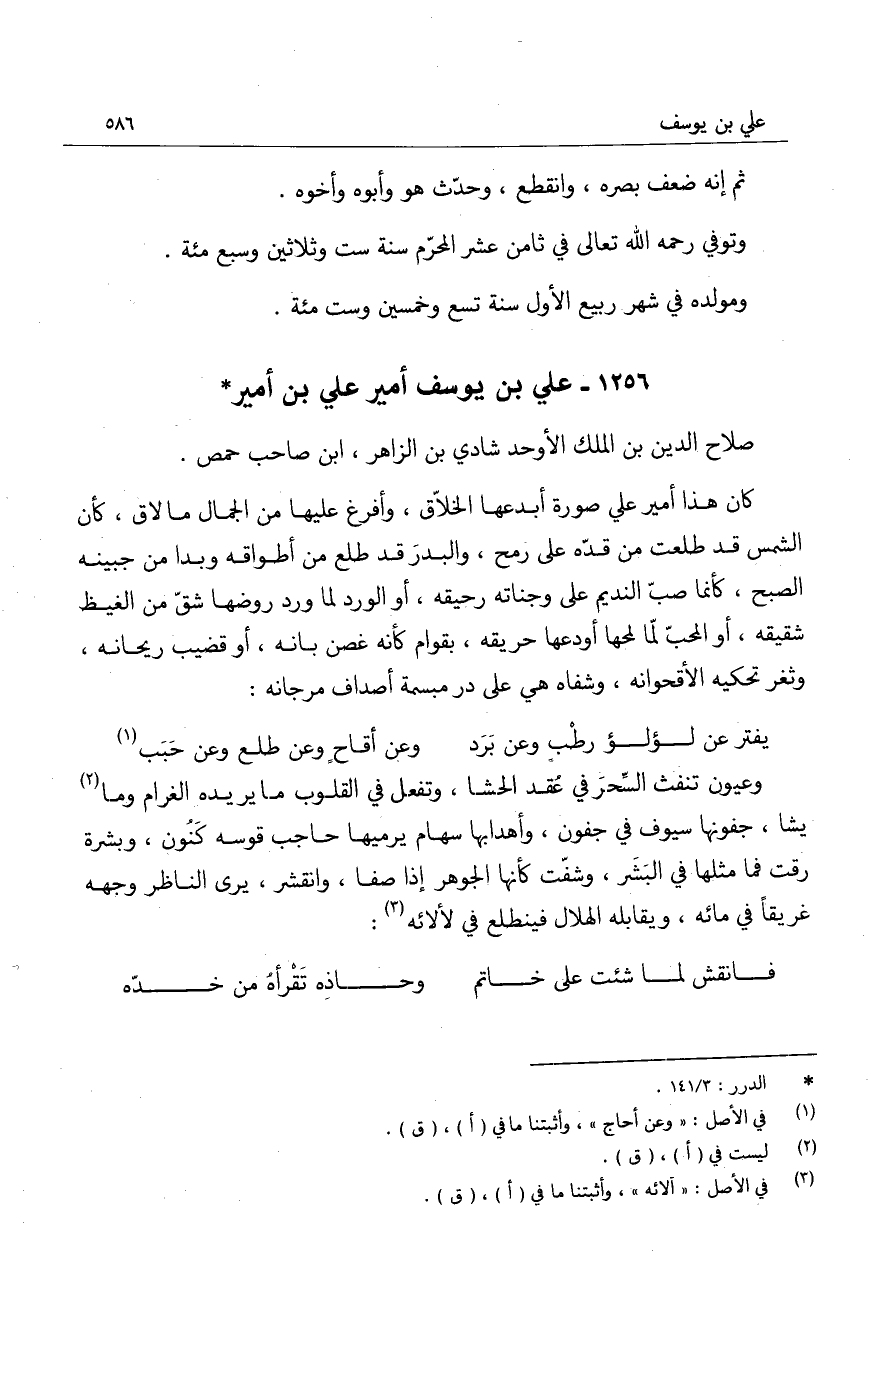 علي بن يوسف ٥٨٦
ثم إنه ضعف بصره ، وانقطع ، وحدّث هو وأبوه وأخوه .
وتوفي رحمه الله تعالى في ثامن عشر المحرّم سنة ست وثلاثين وسبع مئة .
ومولده في شهر ربيع الأول سنة تسع وخمسين وست مئة .
١٢٥٦ - علي بن يوسف أمير علي بن أمير*
صلاح الدين بن الملك الأوحد شادي بن الزاهر ، ابن صاحب حمص .
كان هذا أمير علي صورة أبدعها الخلاّق ، وأفرغ عليها من الجمال ما لاق ، كأن
الشمس قد طلعت من قدّه على رمح ، والبدرَ قد طلع من أطواقه وبدا من جبينه
الصبح ، كأنما صبّ النديم على وجناته رحيقه ، أو الورد لما ورد روضها شقّ من الغيظ
شقيقه ، أو المحبّ لمّا لمحها أودعها حريقه ، بقوام كأنه غصن بانه ، أو قضيب ريحانه ،
وثغر تحكيه الأقحوانه ، وشفاه هي على در مبسمة أصداف مرجانه :
يفتر عن لؤلؤ رطْبٍ وعن بَرَد وعن أقاحٍ وعن طلع وعن حَبَب(١)
وعيون تنفث السِّحرَ في عُقد الحشا ، وتفعل في القلوب ما يريده الغرام وما(٢)
يشا ، جفونها سيوف في جفون ، وأهدابها سهام يرميها حاجب قوسه كَنُون ، وبشرة
رقت فما مثلها في البَشَر ، وشفّت كأنها الجوهر إذا صفا ، وانقشر ، يرى الناظر وجهه
غريقاً في مائه ، ويقابله الهلال فينطلع في لألائه(٣) :
فانقش لما شئت على خاتم وحاذِه تَقْرأهُ من خدّه
* الدرر : ١٤١/٣ .
(١) في الأصل : « وعن أحاج » ، وأثبتنا ما في ( أ ) ، ( ق ) .
(٢) ليست في ( أ ) ، ( ق ) .
(٣) في الأصل : « آلائه » ، وأثبتنا ما في ( أ ) ، ( ق ) .